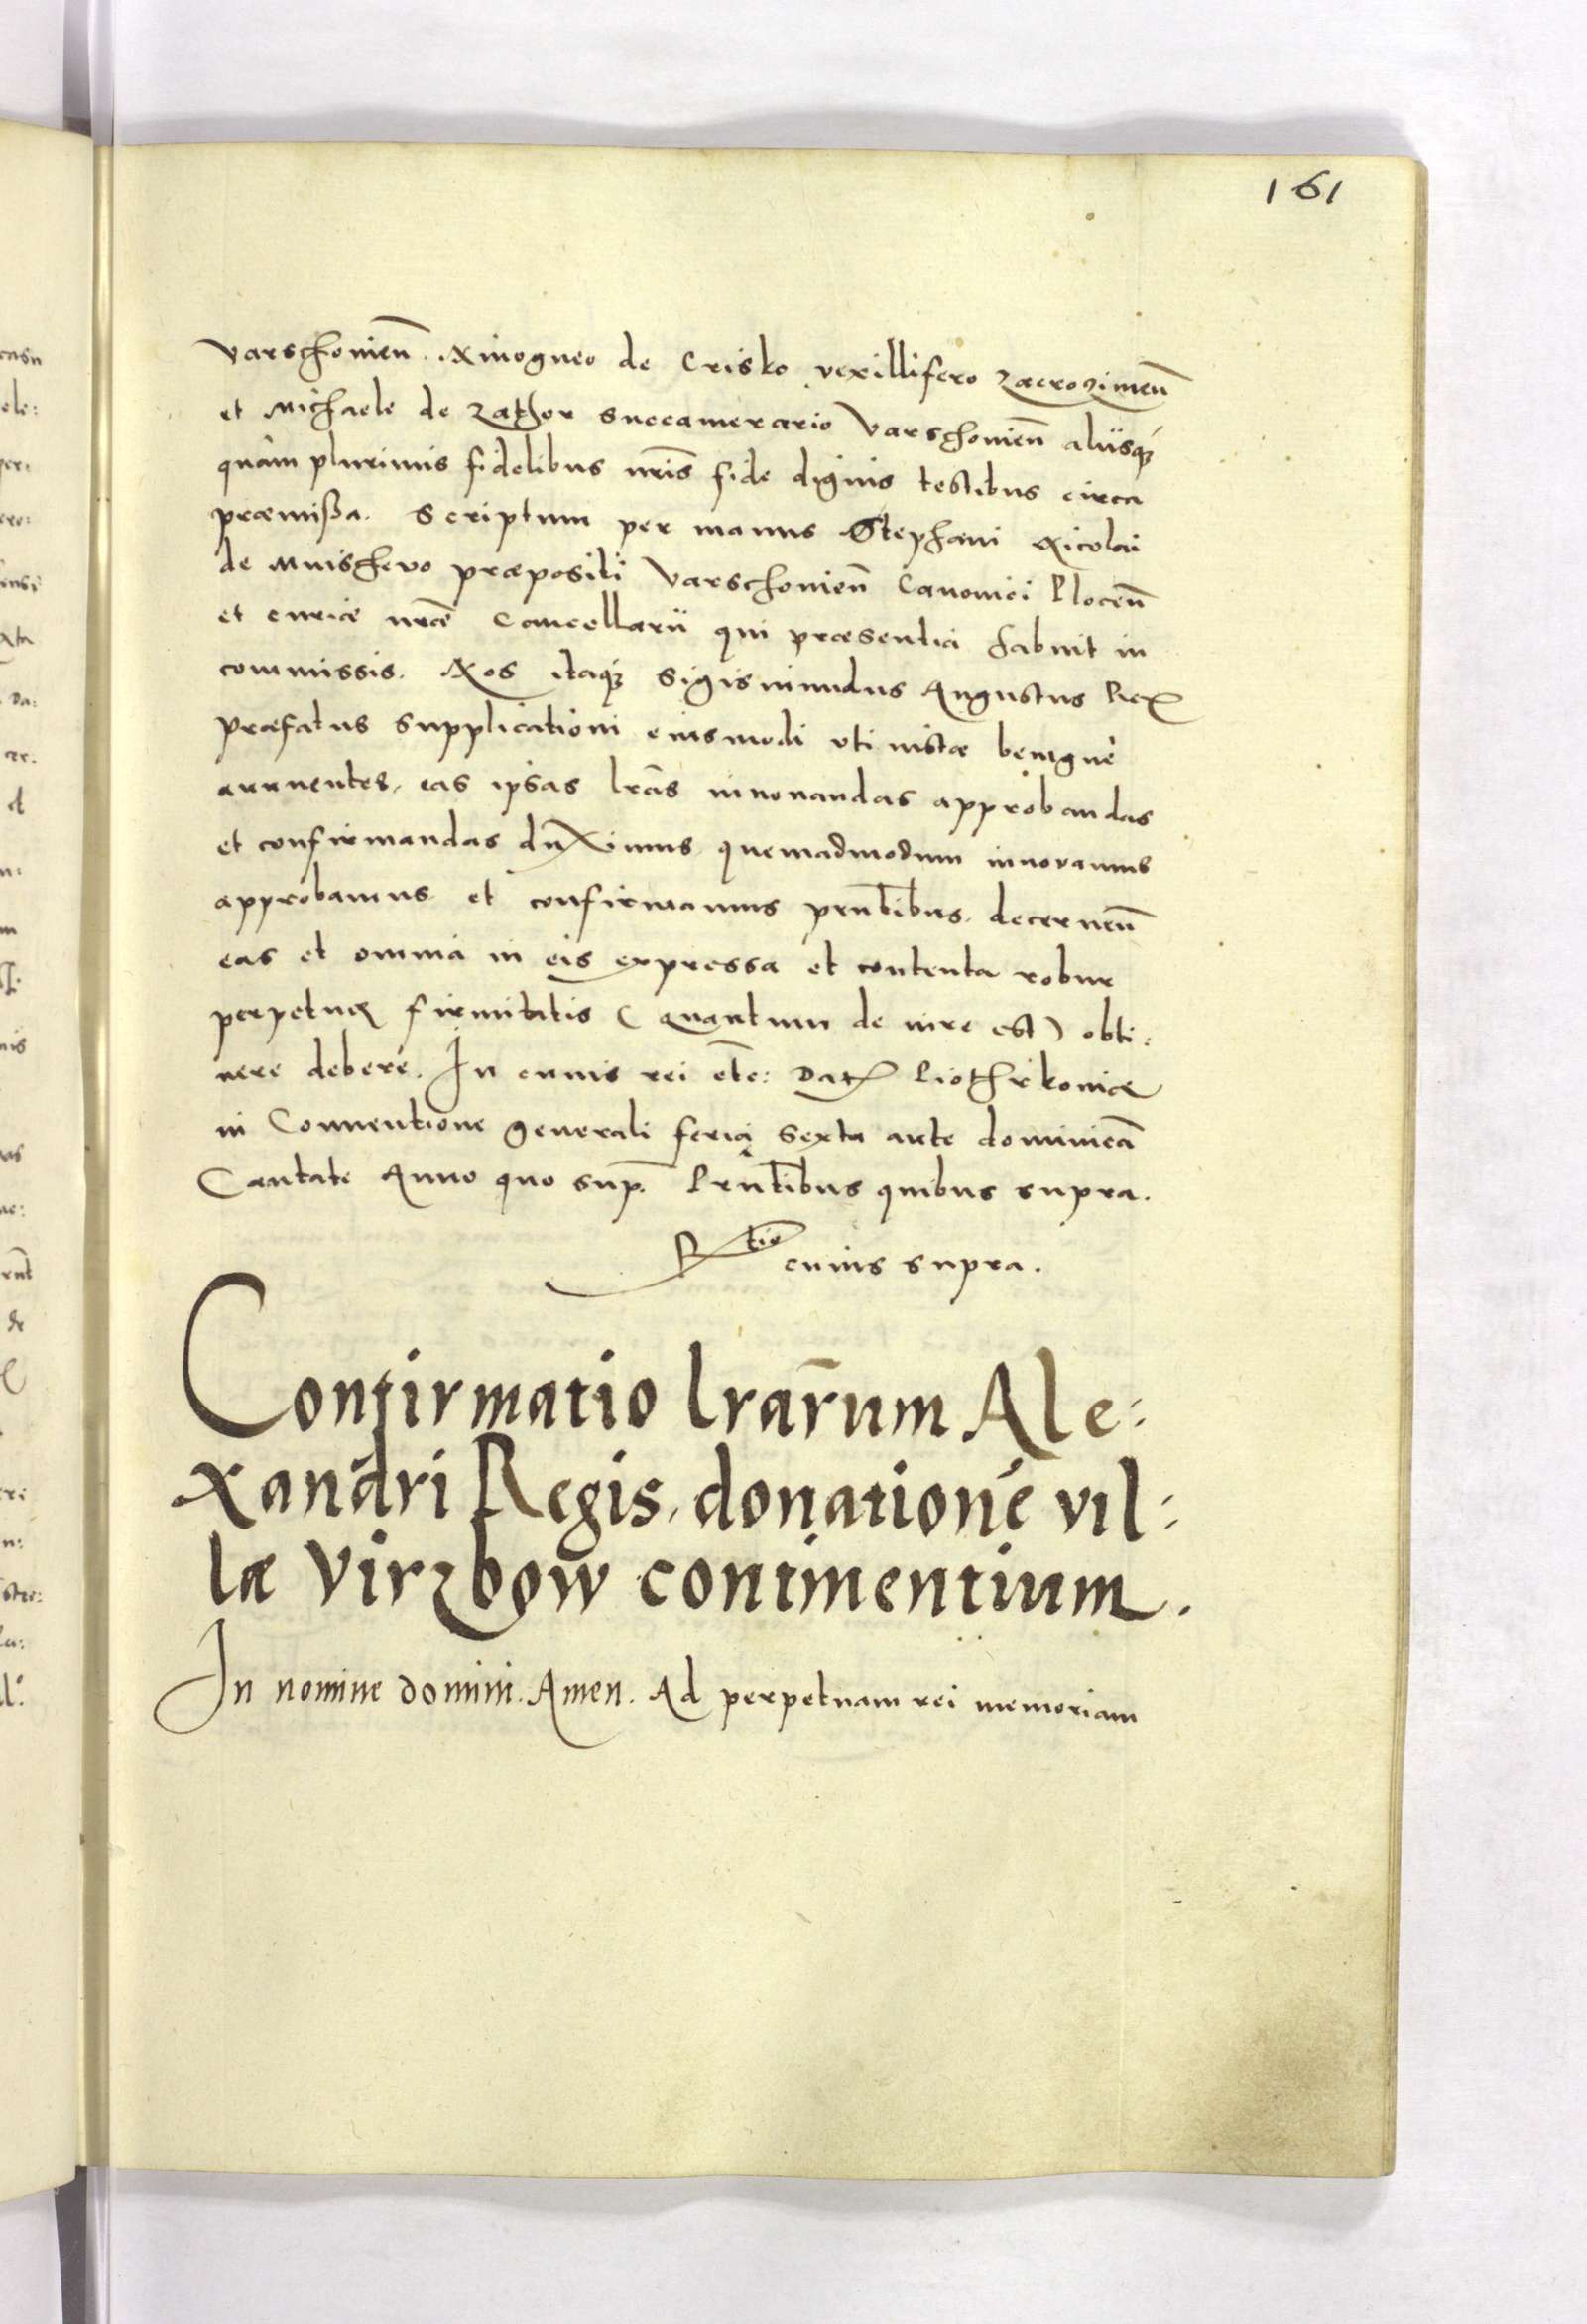 161
Varschouien̄. Ninogneo de Crisko vexillifero Zacrozimen̄
et Michaele de Zathor succamerario Varschouien̄ aliisq́ꝫ
quàm plurimis fidelibus nr̄is fide dignis testibus circa
præmißa. Scriptum per manus Stephani Nicolai
de Mnischevo præpositi Varschouien̄ Canonici Plocen̄
et curiæ nr̄æ Cancellarii qui præsentia habuit in
commissis. Nos itaqꝫ Sigismundus Augustus Rex
præfatus supplicationi eiusmodi uti iustæ benignè
annuentes, eas ipsas lr̄as innouandas approbandas
et confirmandas duximus quemadmodum innouamus
approbamus et confirmamus prn̄tibus. decernen̄
eas et omnia in eis expressa et contenta robur
perpetuę firmitatis (quantum de iure est) obti:
nere debere. In cuius rei etc̄: Dat Piothrkouiæ
in Conuentione generali feria sexta ante dominicā
Cantate Anno quo sup. Prn̄tibus quibus supra.
Rtio cuius supra.
Confirmatio lrār̄um Ale:
xandri Regis, donationé vil:
læ Virzbow continentium.
In nomine domini. Amen. Ad perpetuam rei memoriam